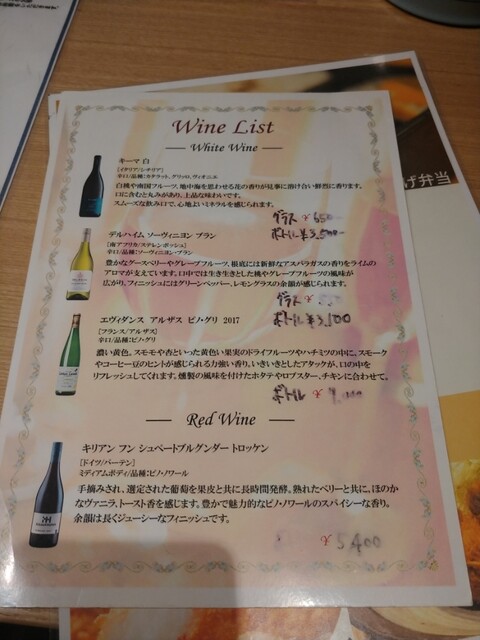 Wine List
White Wine
キーマ 白
[イタリア/シチリア]
辛口/品種:カタラット、グリッロ、ヴィオニエ
白桃や南国フルーツ、地中海を思わせる花の香りが見事に溶け合い鮮烈に香ります。
口に含むと丸みがあり、上品な味わいです。
スムーズな飲み口で、心地よいミネラルを感じられます。
グラス ¥650
ボトル ¥3,500
デルハイム ソーヴィニヨン ブラン
[南アフリカ/ステレンボッシュ]
辛口/品種:ソーヴィニヨン・ブラン
豊かなグースベリーやグレープフルーツ、根底には新鮮なアスパラガスの香りをライムの
アロマが支えています。口中では生き生きとした桃やグレープフルーツの風味が
広がり、フィニッシュにはグリーンペッパー、レモングラスの余韻が感じられます。
グラス ¥
ボトル ¥3,800
エヴィダンス アルザス ピノ・グリ 2017
[フランス/アルザス]
辛口/品種:ピノ・グリ
濃い黄色。スモモや杏といった黄色い果実のドライフルーツやハチミツの中に、スモーク
やコーヒー豆のヒントが感じられる力強い香り。いきいきとしたアタックが、口の中を
リフレッシュしてくれます。燻製の風味を付けたホタテやロブスター、チキンに合わせて。
ボトル ¥
Red Wine
キリアン フン シュペートブルグンダー トロッケン
[ドイツ/バーデン]
ミディアムボディ/品種:ピノ・ノワール
手摘みされ、選定された葡萄を果皮と共に長時間発酵。熟れたベリーと共に、ほのか
なヴァニラ、トースト香を感じます。豊かで魅力的なピノ・ノワールのスパイシーな香り。
余韻は長くジューシーなフィニッシュです。
¥5,400
げ弁当